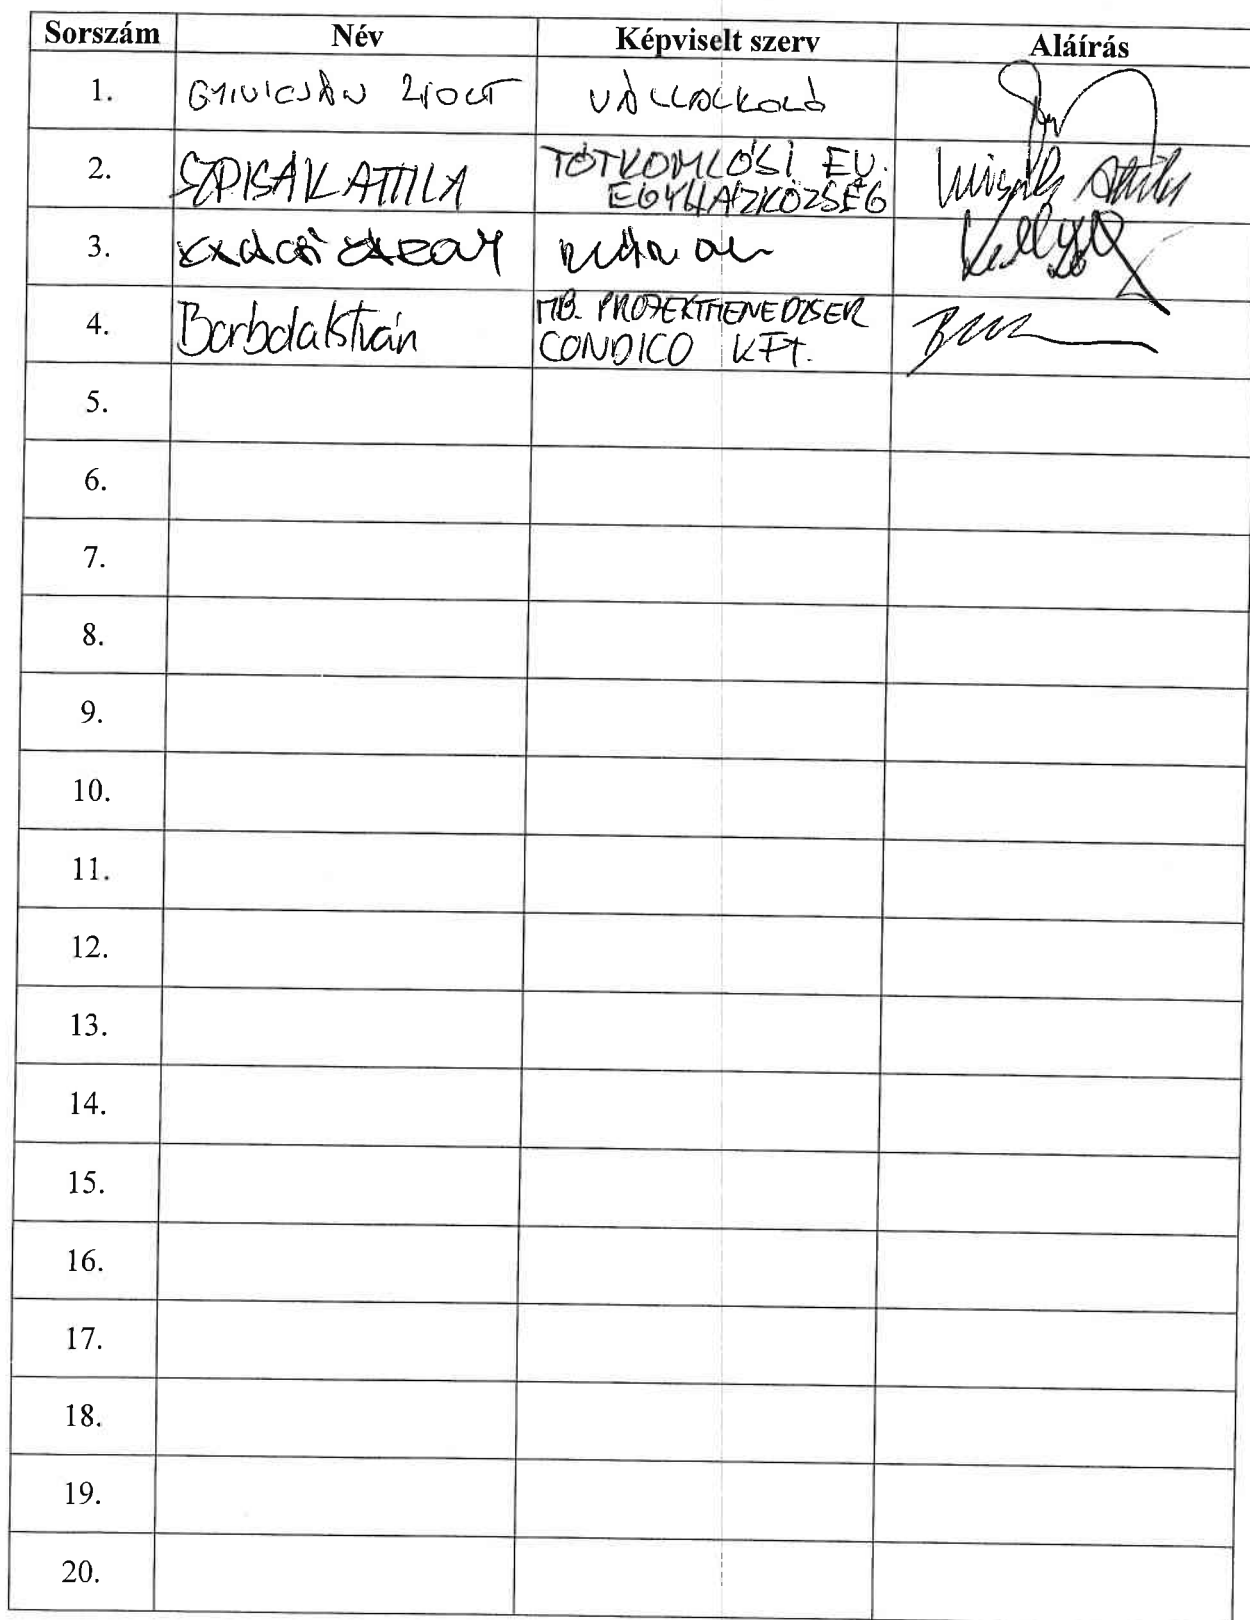 Sorszám Név Képviselt szerv Aláírás
1. GYIVICSÁN ZSOLT VÁLLALKOZÓ
2. SZPISÁK ATTILA TÓTKOMLÓSI EV.
EGYHÁZKÖZSÉG
3.
4. Barbola István MB. PROJEKTMENEDZSER
CONDICO KFT.
5.
6.
7.
8.
9.
10.
11.
12.
13.
14.
15.
16.
17.
18.
19.
20.